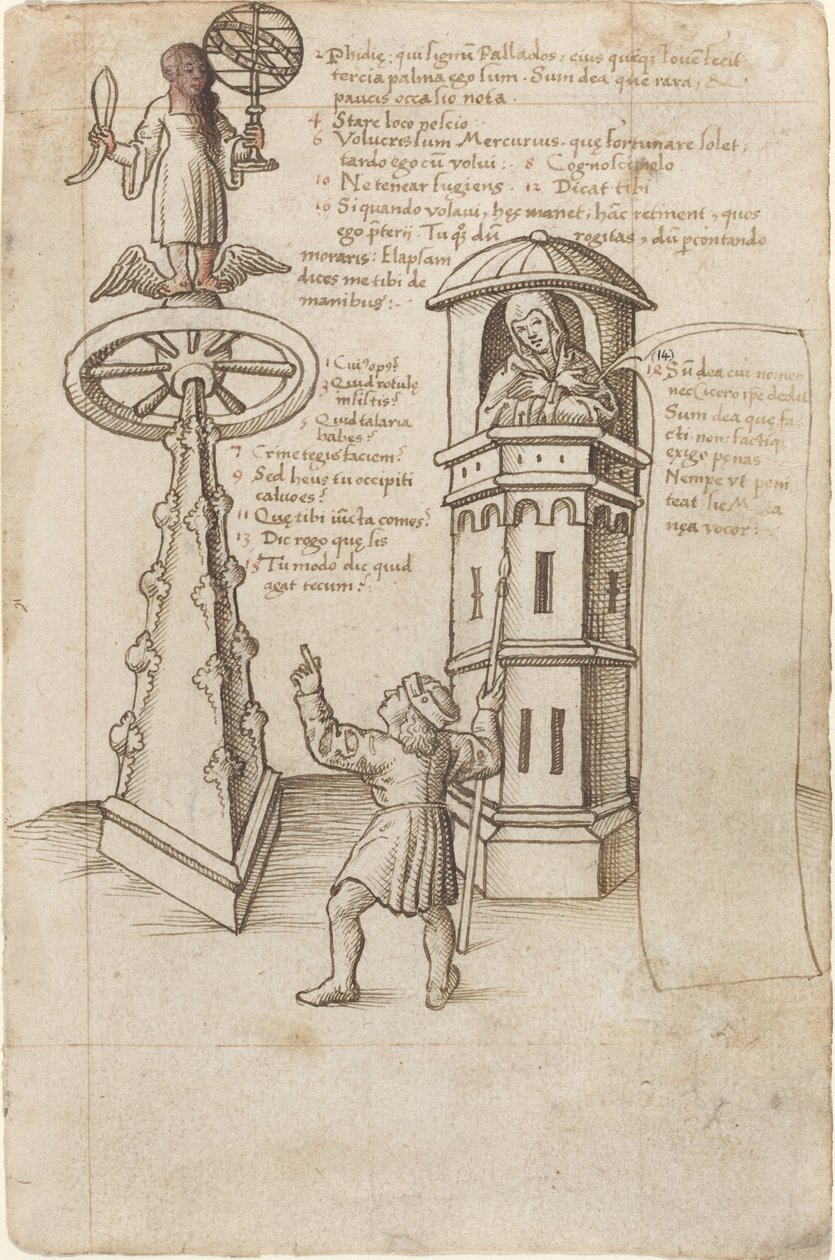 2 Phidię: qui signū Pallados, eius quęqȝ Iouē fecit
tercia palma ego sum. Sum dea que rara, &
paucis occasio nota.
4 Stare loco nescio:
6 Volucris sum. Mercurius. quę fortunare solet,
tardo ego cū volui:. 8 Cognosci nolo
10 Ne tenear fugiens. 12 Dicat tibi
16 Si quando volaui, hęc manet, hāc retinent, quos
ego p̄terij. Tu qȝ dū rogitas, dū p̄contando
moraris: Elapsam
dices me tibi de
manibus:.
1 Cuiꝰ opꝰ?
3 Quid rotulę
insistis?
5 Quid talaria
habes?
7 Crine tegis faciem?
9 Sed heus tu occipiti
caluo es?
11 Quę tibi iūcta comes?
13 Dic rogo quę sis
15 Tu modo dic quid
agat tecum?
(14)
Sū dea cui nomen
nec Cicero ipe dedit
Sum dea que fa-
cti non factiqȝ
exigo penas
Nempe vt peni
teat sic
nęa vocor: